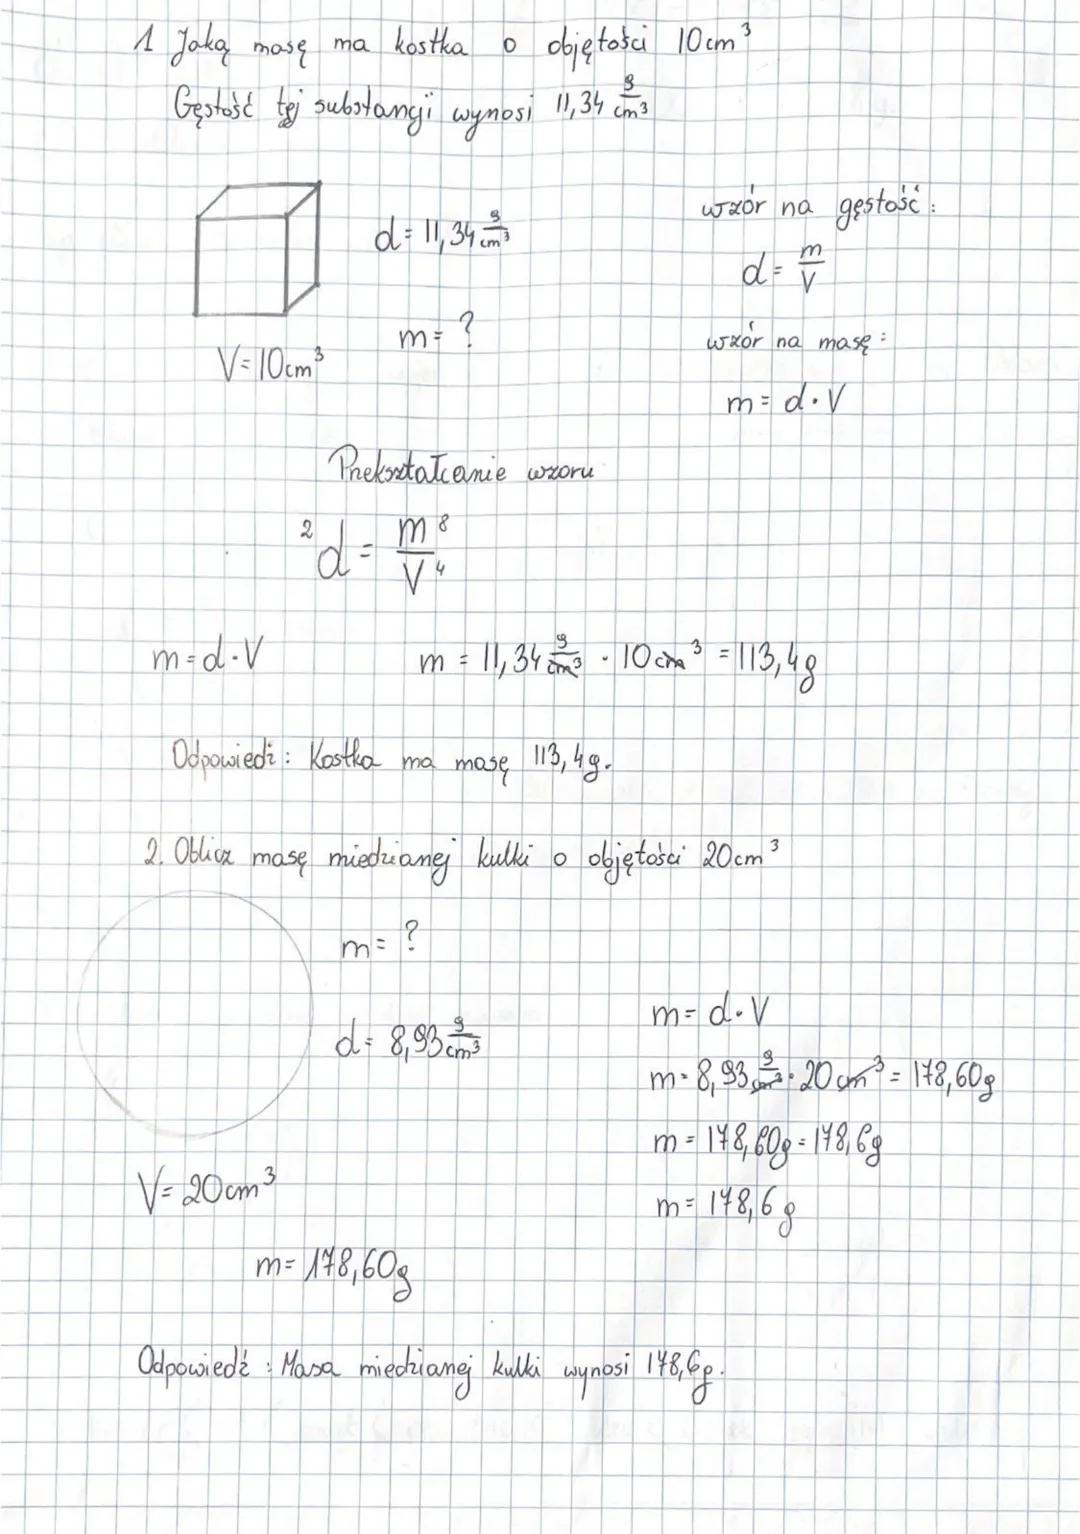 1 Jaką masę ma kostka o objętości 10cm³
Gęstość tej substancji wynosi 11,34 g/cm³
d= 11,34 g/cm³
m= ?
V= 10cm³
wzór na gęstość:
d= m/V
wzór na masę:
m= d·V
Przekształcanie wzoru
² d = m⁸/V⁴
m=d·V
m = 11,34 g/cm³ · 10cm³ = 113,4g
Odpowiedź: Kostka ma masę 113,4g.
2. Oblicz masę miedzianej kulki o objętości 20cm³
m= ?
d= 8,93 g/cm³
V= 20cm³
m= 178,60g
m= d·V
m= 8,93 g/cm³ · 20cm³ = 178,60g
m= 178,60g = 178,6g
m= 178,6g
Odpowiedź: Masa miedzianej kulki wynosi 178,6g.